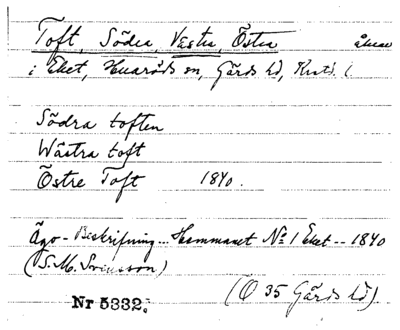 Toft, Södra, Västra, Östra åkrar
i Eket, Huaröds sn, Gärds hd, Krist. l.
Södra toften
Wästra toft
Östre Toft 1840.
Ägo-Beskrifning... Hemmanet No 1 Eket -- 1840
(S. M. Svensson)
(O 35 Gärds hd)
Nr 5332.